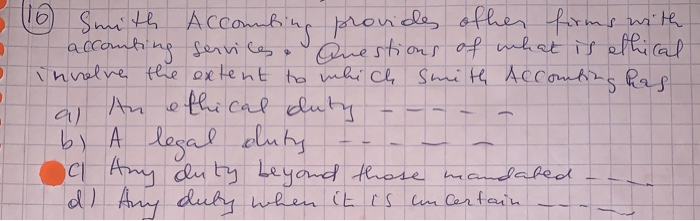 16 Smith Accounting provides other firms with
accounting services. Questions of what is ethical
involve the extent to which Smith Accounting has
a) An ethical duty - - - - -
b) A legal duty - - - - -
c) Any duty beyond those mandated - - - -
d) Any duty when it is uncertain - - - -